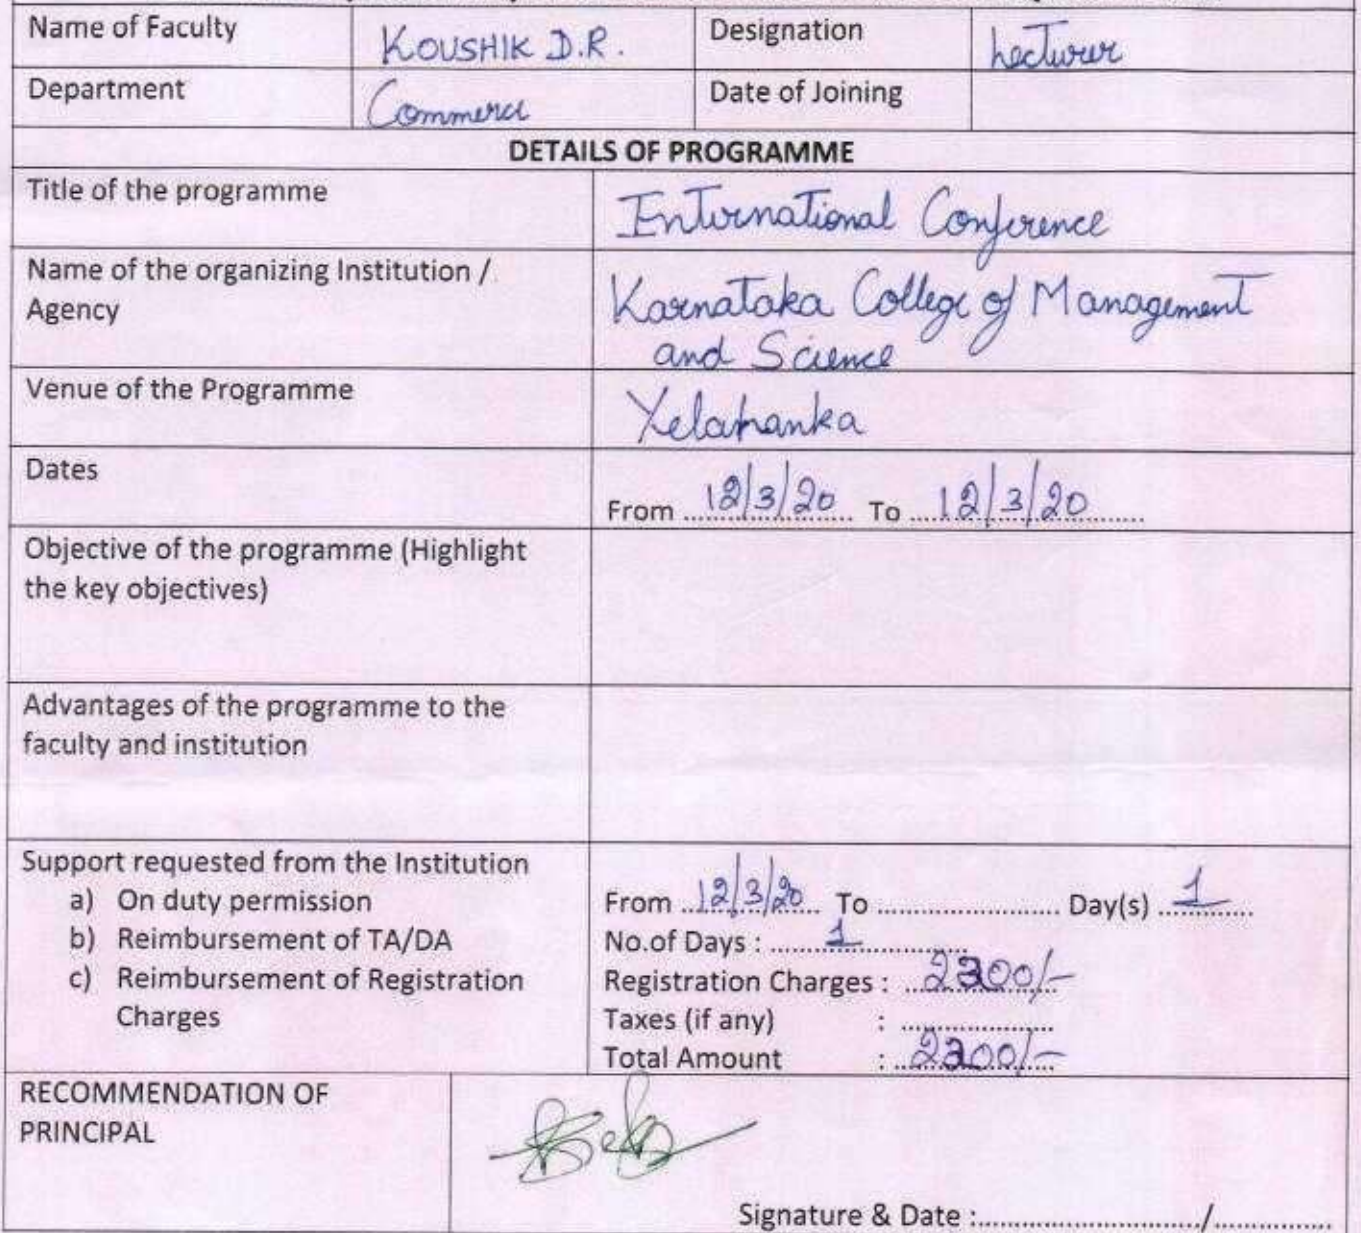 Name of Faculty KOUSHIK D.R. Designation Lecturer
Department Commerce Date of Joining
DETAILS OF PROGRAMME
Title of the programme International Conference
Name of the organizing Institution / Karnataka College of Management
Agency and Science
Venue of the Programme Yelahanka
Dates
From 12/3/20 To 12/3/20
Objective of the programme (Highlight
the key objectives)
Advantages of the programme to the
faculty and institution
Support requested from the Institution
a) On duty permission From 12/3/20 To .................... Day(s) 1
b) Reimbursement of TA/DA No.of Days : 1
c) Reimbursement of Registration Registration Charges : /-
Charges Taxes (if any) : ....................
Total Amount : /-
RECOMMENDATION OF
PRINCIPAL
Signature & Date :............................../................